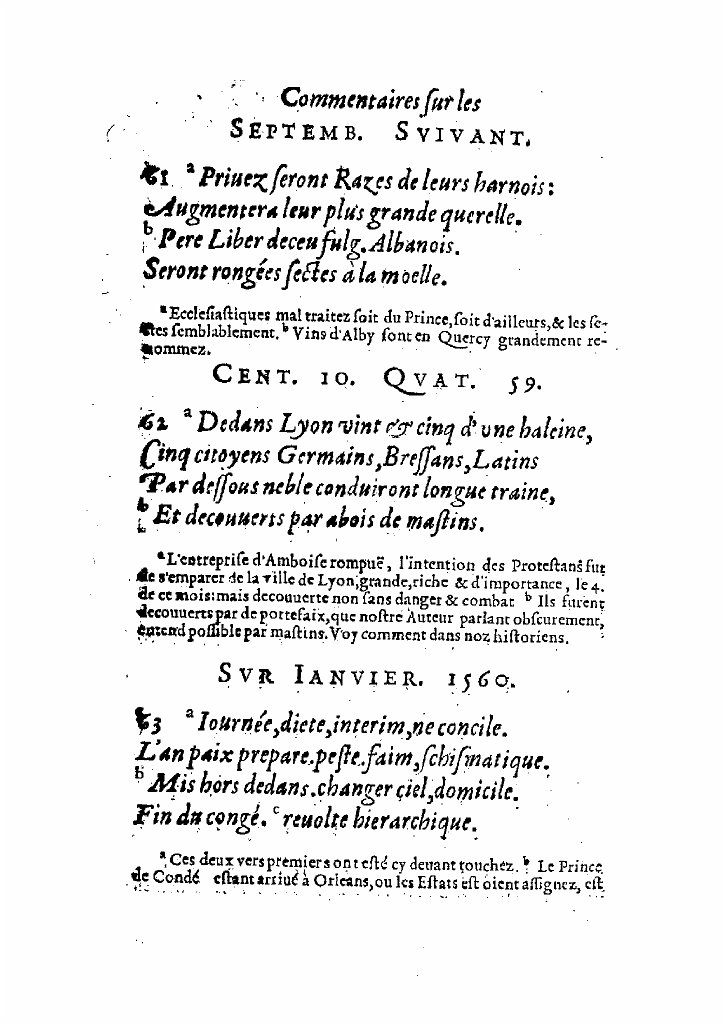 Commentaires ſur les
SEPTEMB. SVIVANT.
61 ᵃ Priuez ſeront Razes de leurs harnois:
Augmentera leur plus grande querelle.
ᵇ Pere Liber deceu fulg. Albanois.
Seront rongées ſectes à la moelle.
ᵃ Eccleſiaſtiques mal traitez ſoit du Prince, ſoit d'ailleurs, & les ſe-
ctes ſemblablement. ᵇ Vins d'Alby ſont en Quercy grandement re-
nommez.
CENT. 10. QVAT. 59.
62 ᵃ Dedans Lyon vint & cinq d'vne haleine,
Cinq citoyens Germains, Breſſans, Latins
Par deſſous neble conduiront longue traine,
ᵇ Et decouuerts par abois de maſtins.
ᵃ L'entrepriſe d'Amboiſe rompuë, l'intention des Proteſtans fut
de s'emparer de la ville de Lyon, grande, riche & d'importance, le 4.
de ce mois: mais decouuerte non ſans danger & combat ᵇ Ils furent
decouuerts par de portefaix, que noſtre Auteur parlant obſcurement,
entend poſſible par maſtins. Voy comment dans noz hiſtoriens.
SVR IANVIER. 1560.
63 ᵃ Iournée, diete, interim, ne concile.
L'an paix prepare. peſte. faim, ſchiſmatique.
ᵇ Mis hors dedans. changer ciel, domicile.
Fin du congé. ᶜ reuolte hierarchique.
ᵃ Ces deux vers premiers ont eſté cy deuant touchez. ᵇ Le Prince
de Condé eſtant arriué à Orleans, ou les Eſtats eſtoient aſſignez, eſt